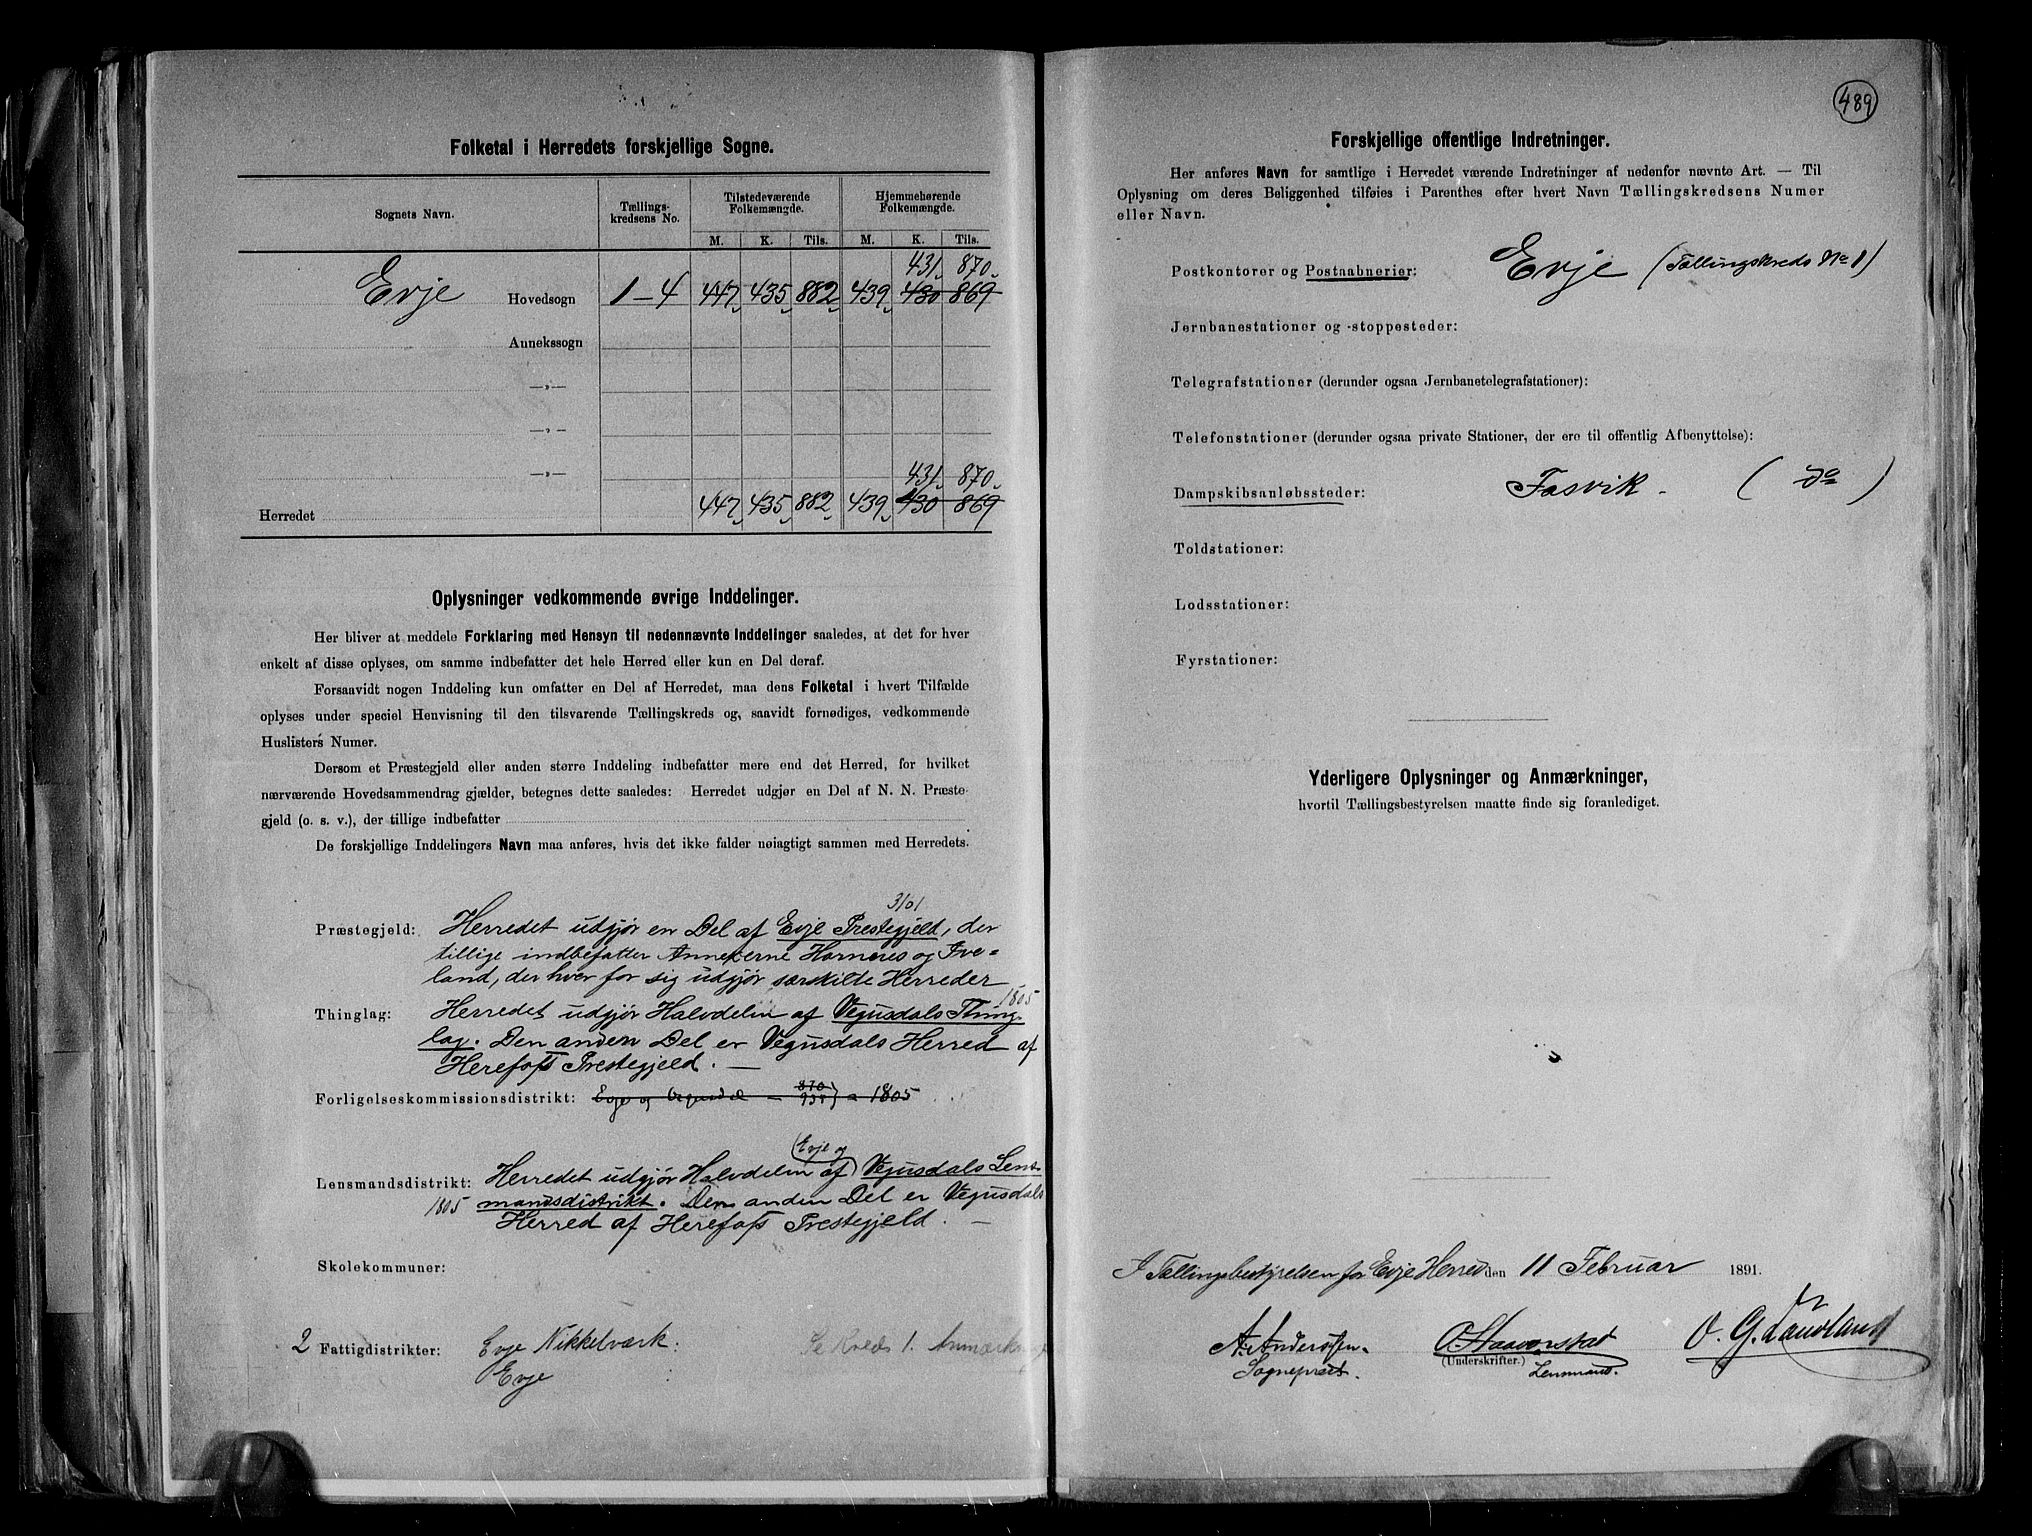 Folketal i Herredets forskjellige Sogne.
Sognets Navn. Tællings- kredsens No. Tilstedeværende Folkemængde. Hjemmehørende Folkemængde.
M. K. Tils. M. K. Tils.
431 870
Evje Hovedsogn 1-4 447 435 882 439 430 869
Annekssogn
—„—
—„—
—„—
431 870
Herredet 447 435 882 439 430 869
Oplysninger vedkommende øvrige Inddelinger.
Her bliver at meddele Forklaring med Hensyn til nedennævnte Inddelinger saaledes, at det for hver
enkelt af disse oplyses, om samme indbefatter det hele Herred eller kun en Del deraf.
Forsaavidt nogen Inddeling kun omfatter en Del af Herredet, maa dens Folketal i hvert Tilfælde
oplyses under speciel Henvisning til den tilsvarende Tællingskreds og, saavidt fornødiges, vedkommende
Huslisters Numer.
Dersom et Præstegjeld eller anden større Inddeling indbefatter mere end det Herred, for hvilket
nærværende Hovedsammendrag gjælder, betegnes dette saaledes: Herredet udgjør en Del af N. N. Præste-
gjeld (o. s. v.), der tillige indbefatter
De forskjellige Inddelingers Navn maa anføres, hvis det ikke falder nøiagtigt sammen med Herredets.
3101
Præstegjeld: Herredet udgjør en Del af Evje Prestegjeld, der
tillige indbefatter Annexerne Hornnes og Ive=
land, der hver for sig udgjør særskilte Herreder
1805
Thinglag: Herredet udgjør Halvdelin af Vegusdals Thing-
lag. Den anden Del er Vegusdals Herred af
Herefoss Prestegjeld. —
Forligelseskommissionsdistrikt: Evje og Vegusdal — 870 935 } = 1805
(Evje og)
Lensmandsdistrikt: Herredet udgjør Halvdelin af Vegusdals Lens-
1805 mandsdistrikt. Den anden Del er Vegusdals
Herred af Herefoss Prestegjeld. —
Skolekommuner:
2 Fattigdistrikter: Evje Nikkelværk: Se Kreds 1. Anmærkning
Evje :
489
Forskjellige offentlige Indretninger.
Her anføres Navn for samtlige i Herredet værende Indretninger af nedenfor nævnte Art. — Til
Oplysning om deres Beliggenhed tilføies i Parenthes efter hvert Navn Tællingskredsens Numer
eller Navn.
Postkontorer og Postaabnerier: Evje (Tællingskreds No 1)
Jernbanestationer og -stoppesteder:
Telegrafstationer (derunder ogsaa Jernbanetelegrafstationer):
Telefonstationer (derunder ogsaa private Stationer, der ere til offentlig Afbenyttelse):
Dampskibsanløbssteder: Fasvik - ( do )
Toldstationer:
Lodsstationer:
Fyrstationer:
Yderligere Oplysninger og Anmærkninger,
hvortil Tællingsbestyrelsen maatte finde sig foranlediget.
I Tællingsbestyrelsen for Evje Herred den 11 Februar 1891.
A. Anderssen. O. Haavorstad O. G. Lauvland
(Underskrifter.)
Sogneprest. Lensmand.